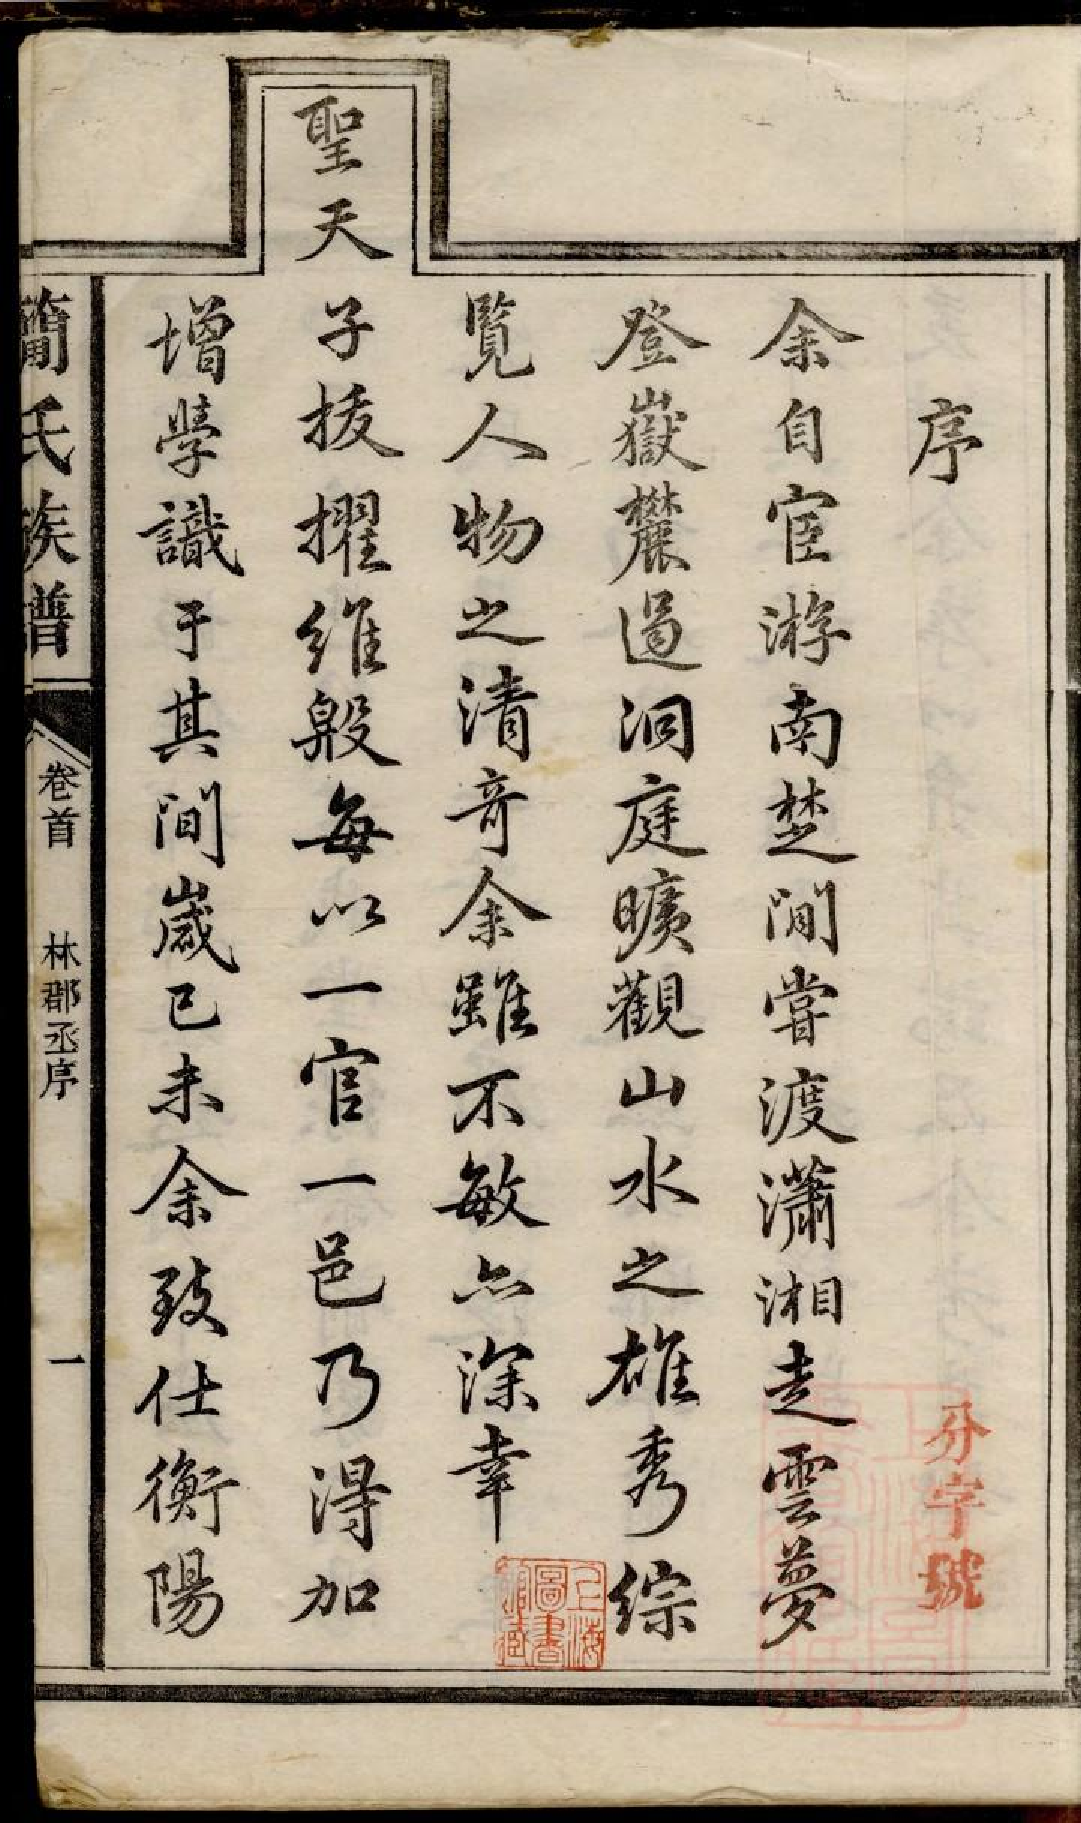 序
余自宦游南楚間嘗渡瀟湘走雲夢
登嶽麓過洞庭曠觀山水之雄秀綜
覽人物之清奇余雖不敏亦深幸
聖天
子拔擢維殷每以一官一邑乃得加
增學識于其間歲己未余致仕衡陽
簡氏族譜
卷首
林郡丞序
一
字號
上海圖書館藏